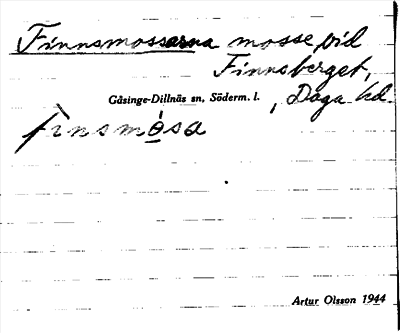 Finnsmossarna mosse vid
Finnsberget,
Gåsinge-Dillnäs sn, Söderm. l. , Daga hd.
finsmósa
Artur Olsson 1944